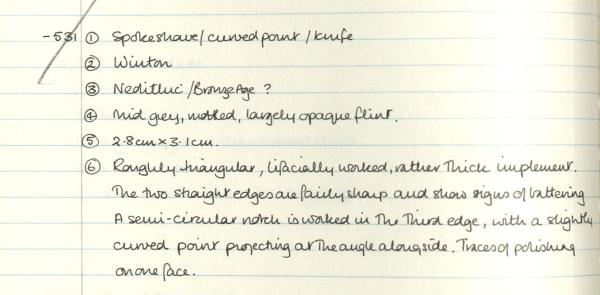 -531 ① Spokeshave/curved point/knife
② Winton
③ Neolithic/Bronze Age ?
④ Mid grey, mottled, largely opaque flint.
⑤ 2.8cm x 3.1cm.
⑥ Roughly triangular, bifacially worked, rather thick implement.
The two straight edges are fairly sharp and show signs of battering
A semi-circular notch is worked in the third edge, with a slightly
curved point projecting at the angle alongside. Traces of polishing
on one face.